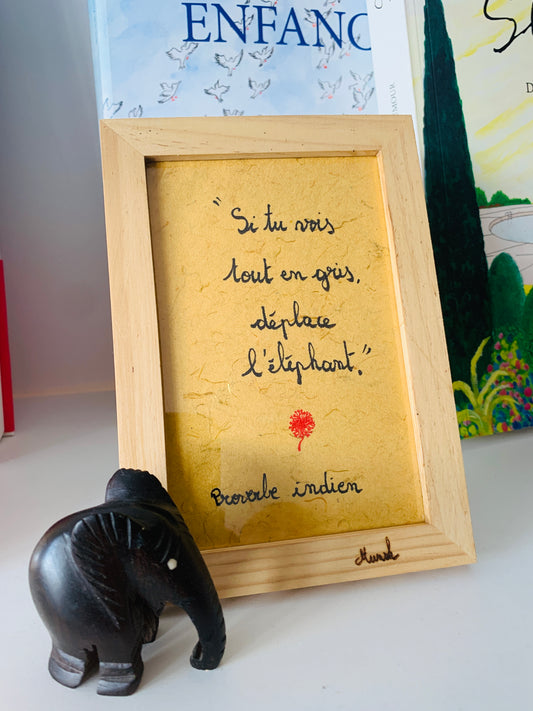 ENFANC
"Si tu vois
tout en gris,
déplace
l'éléphant."
Proverbe indien